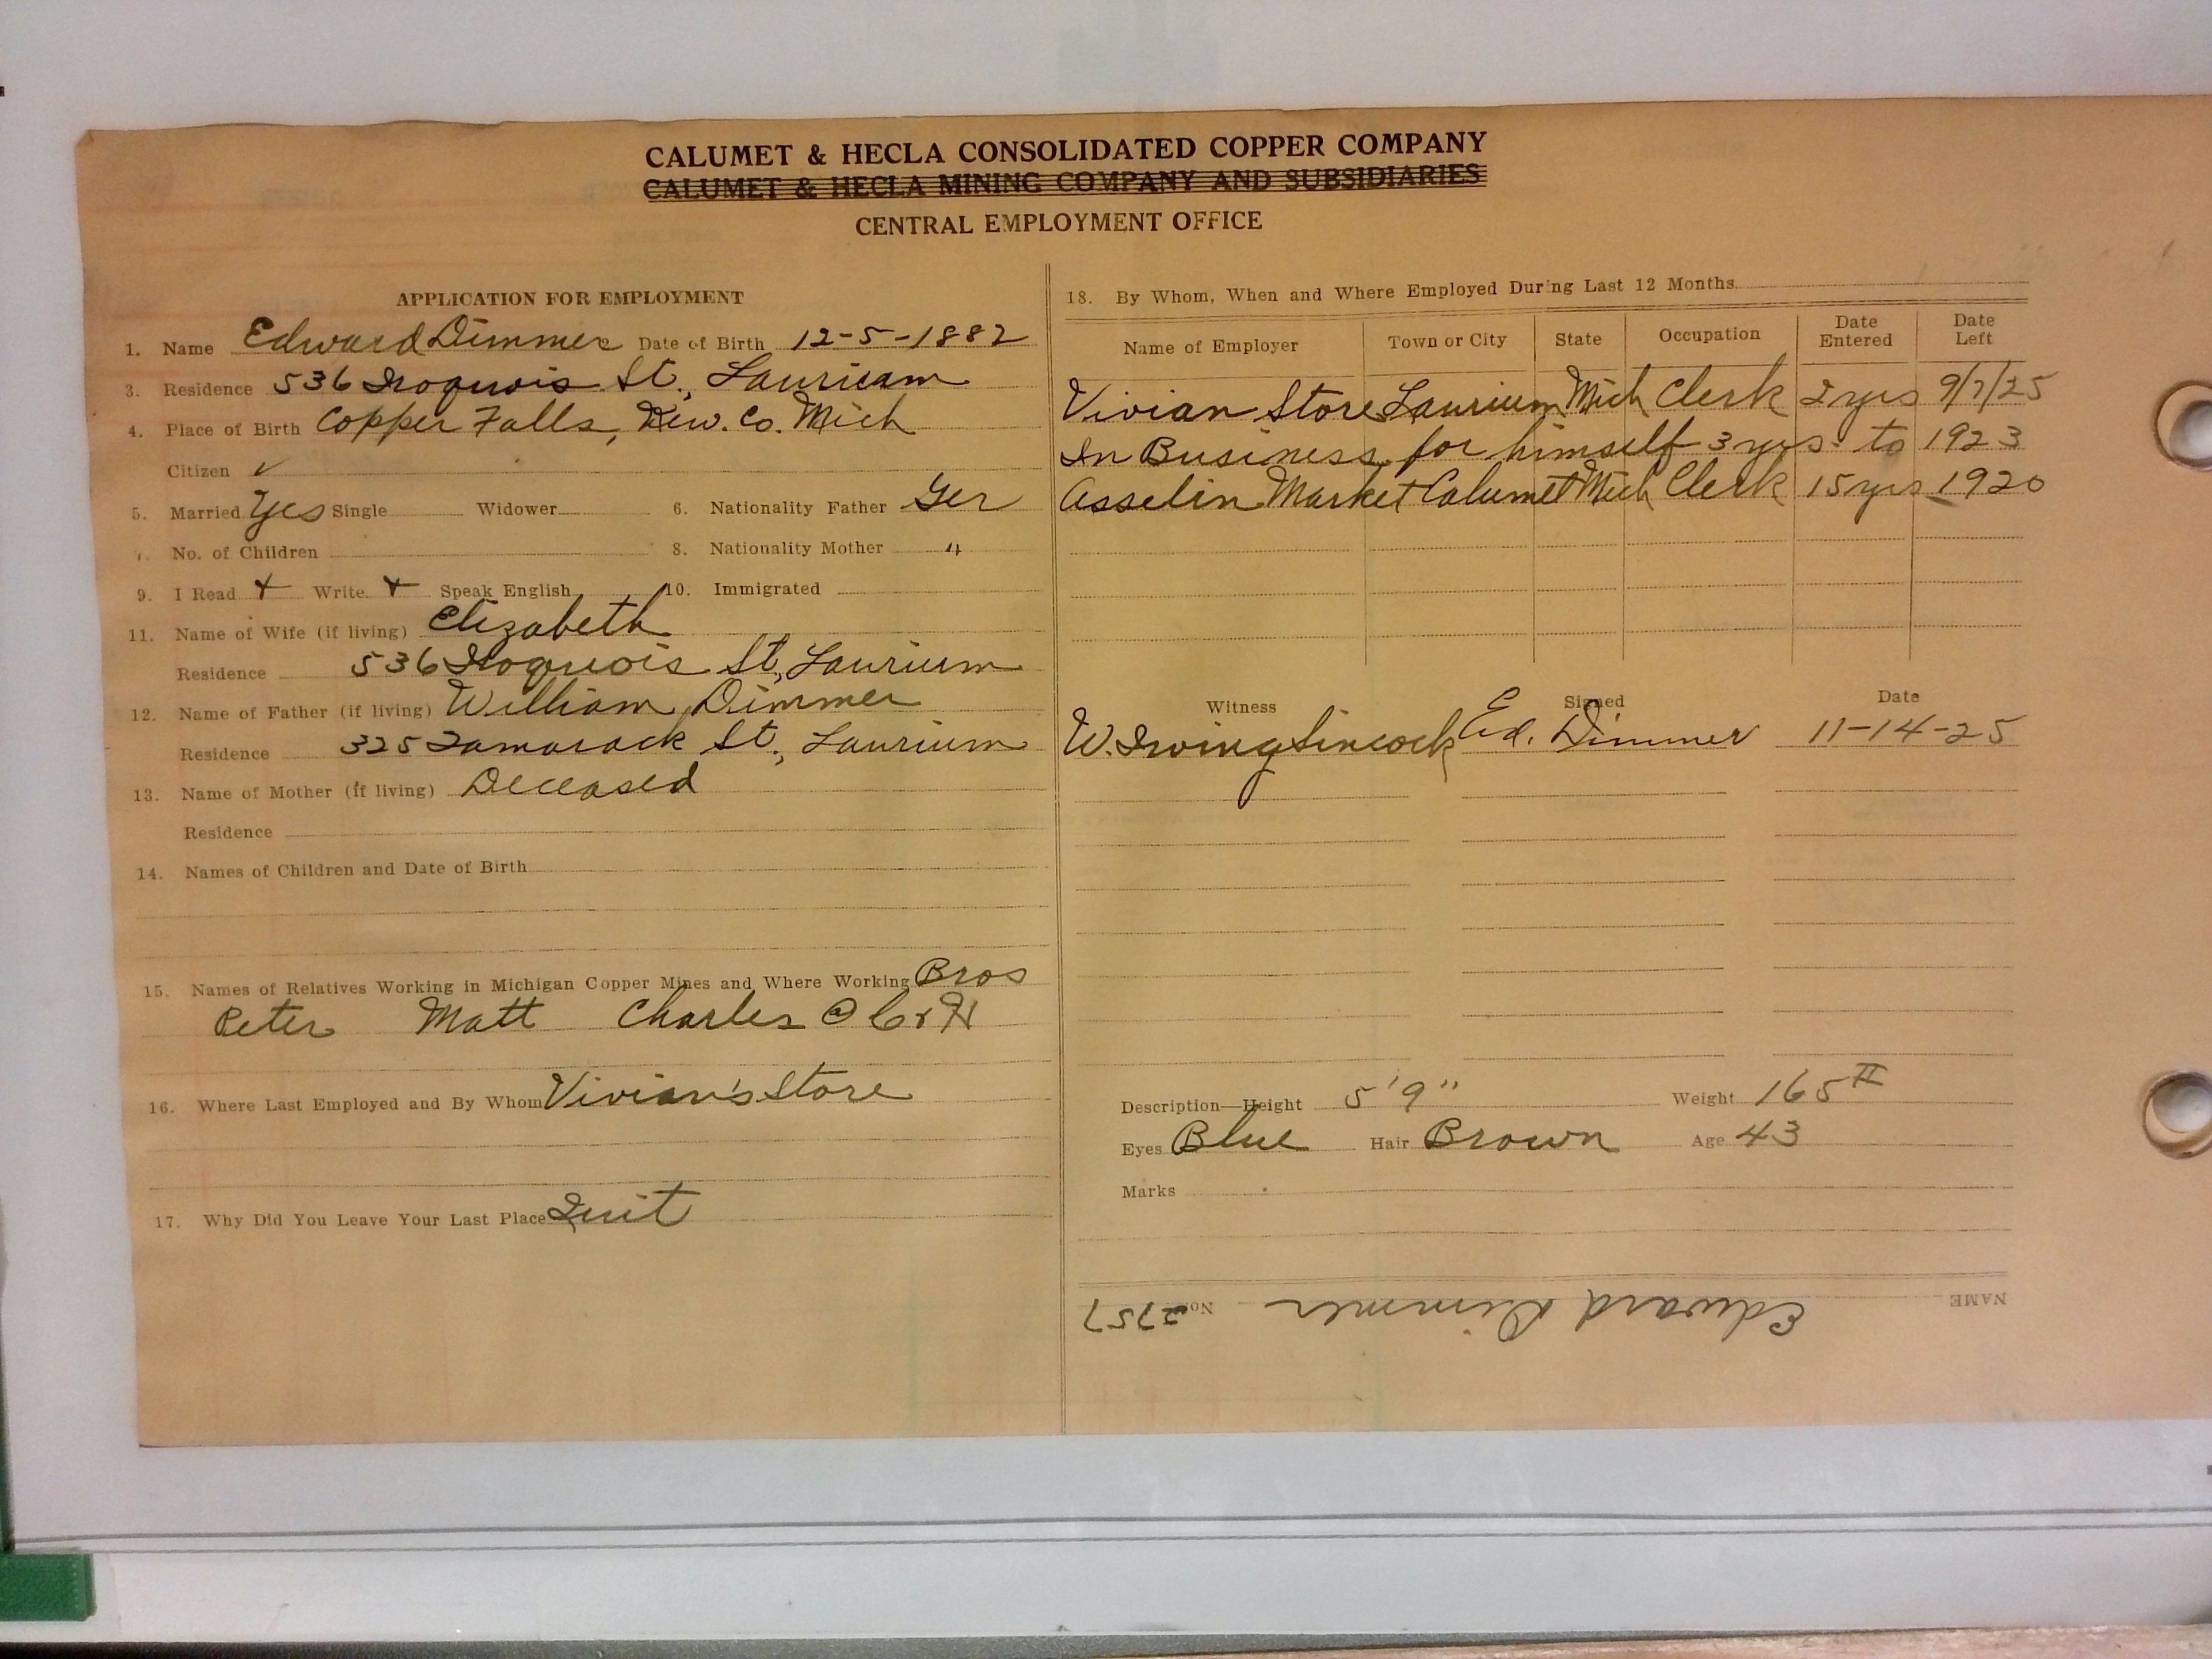 CALUMET & HECLA CONSOLIDATED COPPER COMPANY
CALUMET & HECLA MINING COMPANY AND SUBSIDIARIES
CENTRAL EMPLOYMENT OFFICE
APPLICATION FOR EMPLOYMENT
1. Name Edward Dimmer Date of Birth 12-5-1882
3. Residence 536 Iroquois St., Laurium
4. Place of Birth Copper Falls, Kew. Co. Mich
Citizen ✓
5. Married Yes Single Widower 6. Nationality Father Ger
No. of Children 8. Nationality Mother "
9. I Read + Write + Speak English 10. Immigrated
11. Name of Wife (if living) Elizabeth
Residence 536 Iroquois St, Laurium
12. Name of Father (if living) William Dimmer
Residence 325 Tamarack St., Laurium
13. Name of Mother (if living) Deceased
Residence
14. Names of Children and Date of Birth
15. Names of Relatives Working in Michigan Copper Mines and Where Working Bros
Peter Matt Charles @ C & H
16. Where Last Employed and By Whom Vivian's Store
17. Why Did You Leave Your Last Place Quit
18. By Whom, When and Where Employed During Last 12 Months
Name of Employer Town or City State Occupation Date Entered Date Left
Vivian Store Laurium Mich Clerk 2 yrs 9/7/25
In Business for himself 3 yrs. to 1923
Asselin Market Calumet Mich Clerk 15 yrs 1920
Witness Signed Date
W. Irving Sincock Ed. Dimmer 11-14-25
Description—Height 5'9" Weight 165#
Eyes Blue Hair Brown Age 43
Marks
NAME Edward Dimmer No. 2757